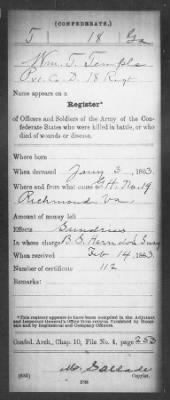 (CONFEDERATE.)
T 18 Ga
Wm. T. Temple
Pvt. Co. D. 18 Regt
Name appears on a
Register*
of Officers and Soldiers of the Army of the Con-
federate States who were killed in battle, or who
died of wounds or disease.
Where born
When deceased Jany 3, 1863.
Where and from what cause G.H. No. 19
Richmond Va
Amount of money left
Effects Sundries
In whose charge B.S. Herndon Surg
When received Feb 14, 1863.
Number of certificate 112
Remarks:
*This register appears to have been compiled in the Adjutant
and Inspector General's Office from returns furnished by Hospi-
tals and by Regimental and Company Officers.
Confed. Arch., Chap. 10, File No. 4, page 253
Copyist.